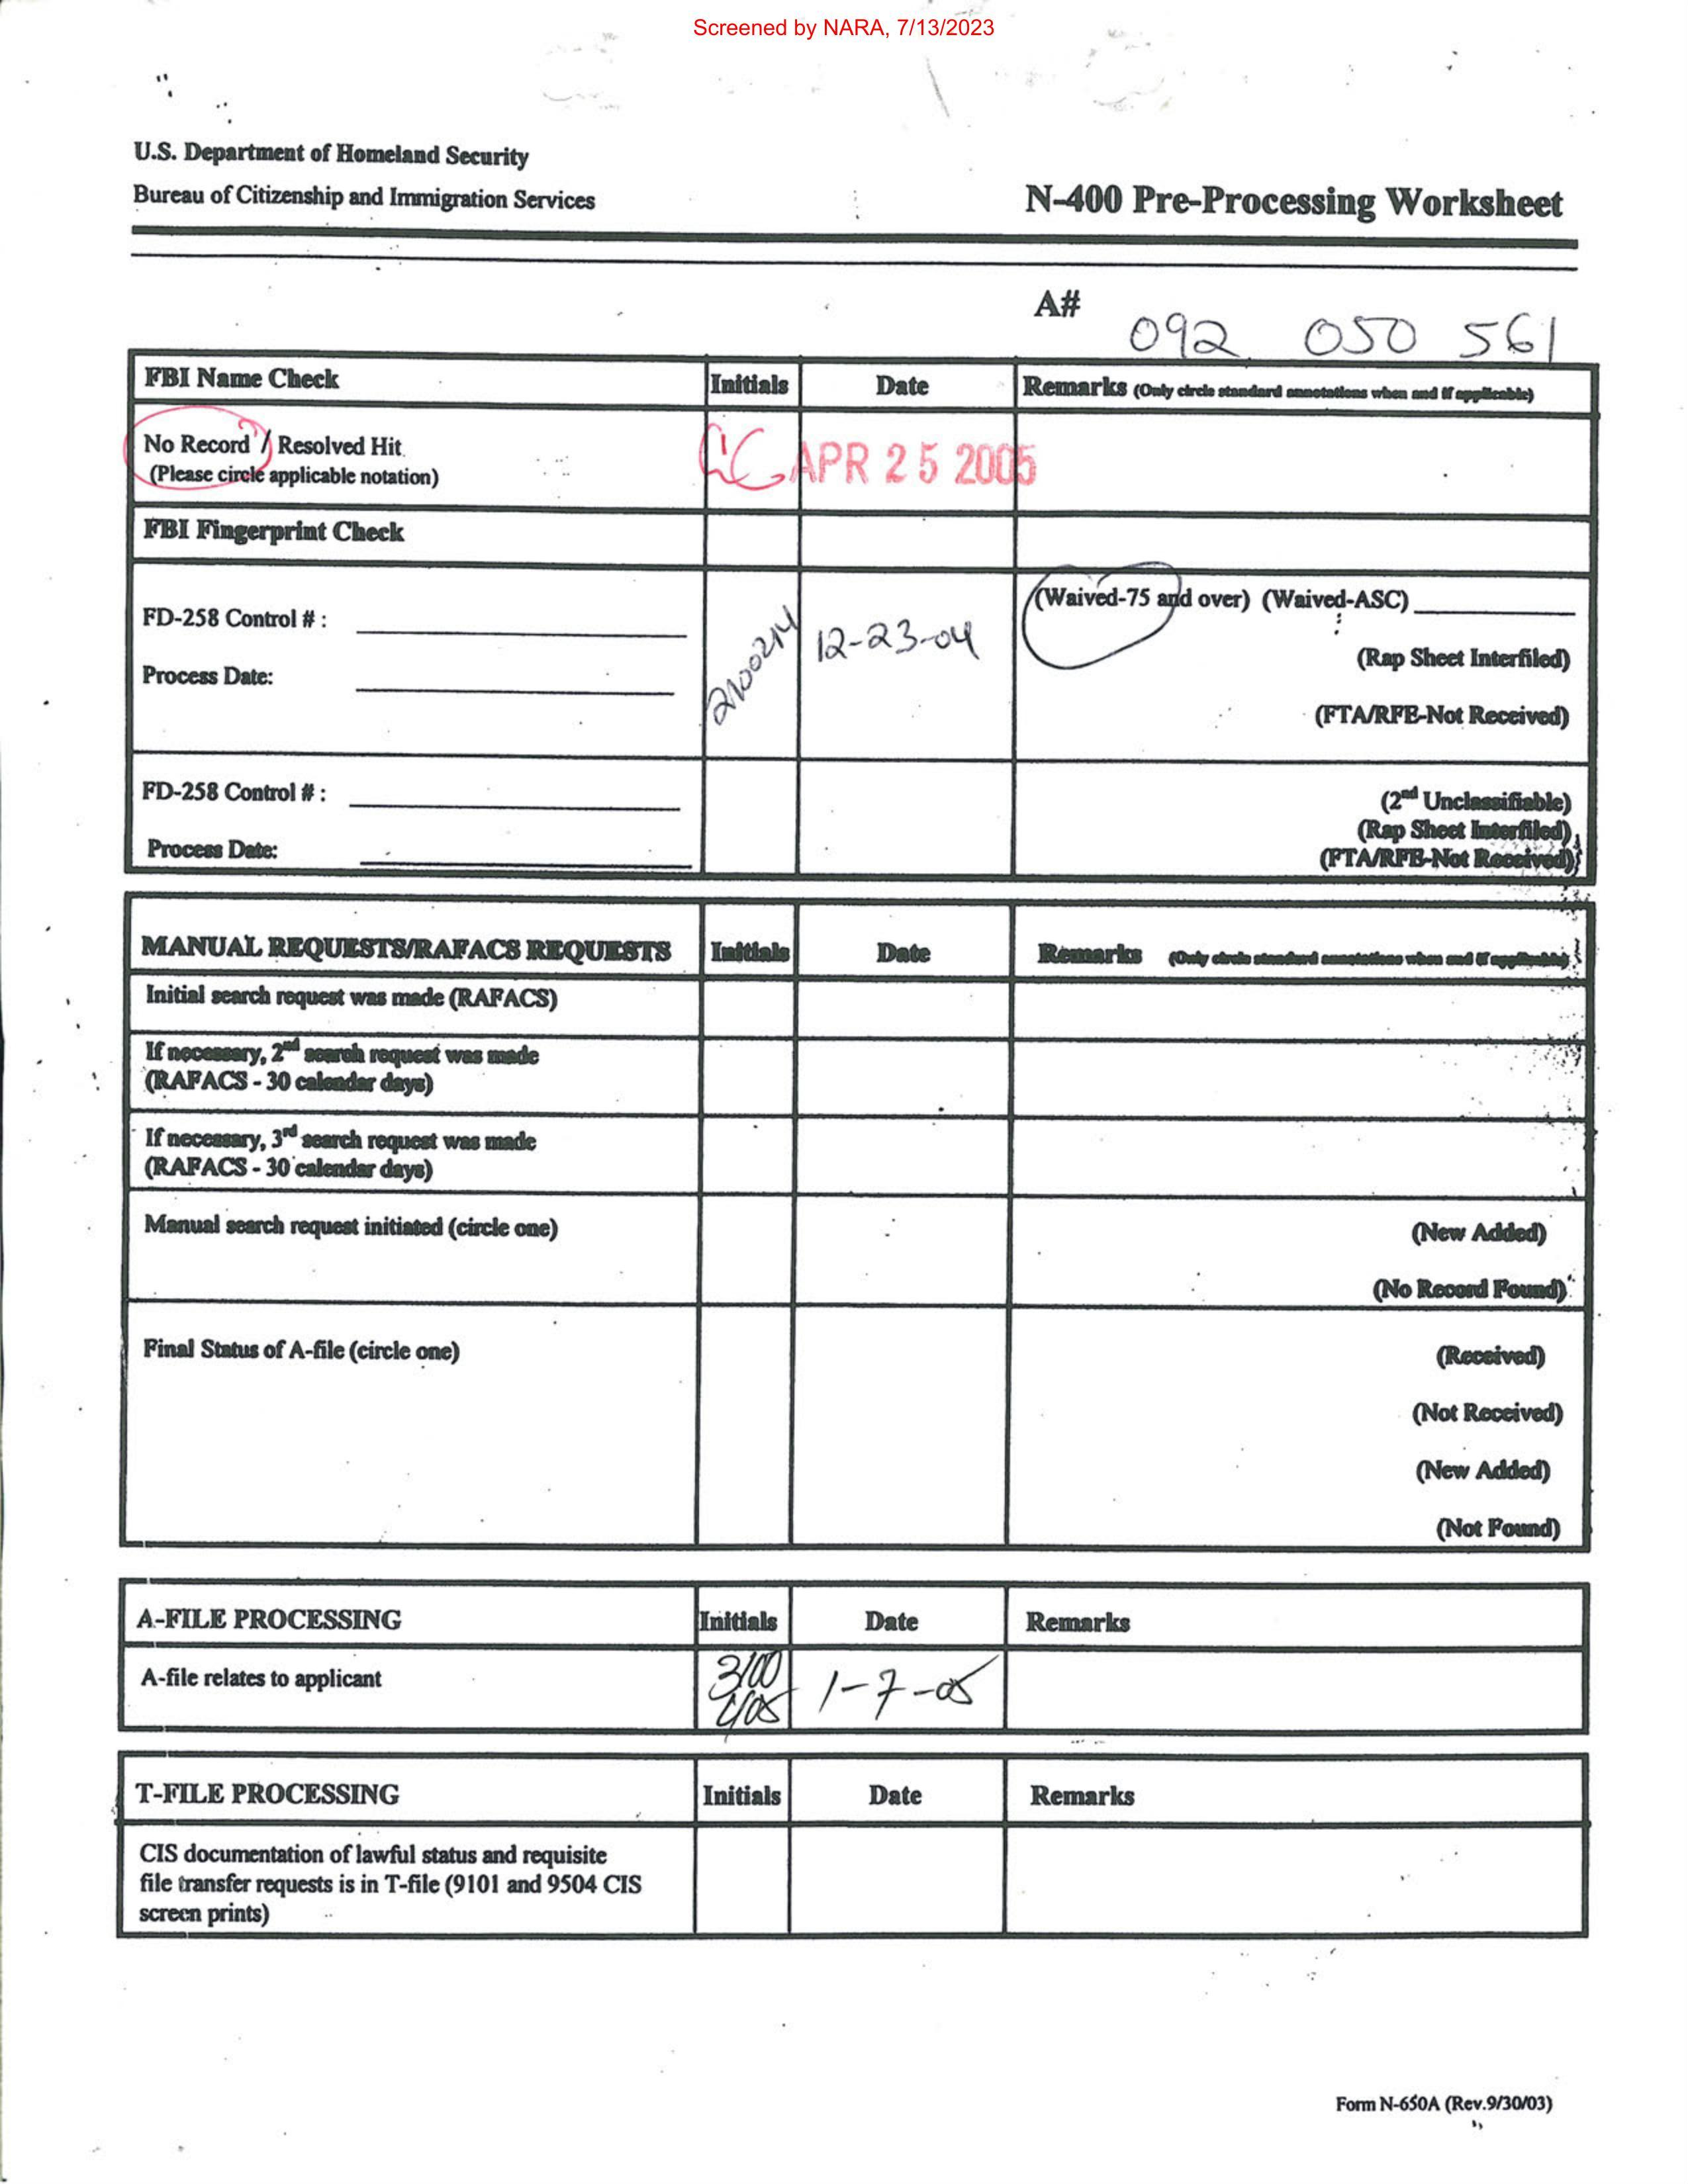 Screened by NARA, 7/13/2023
U.S. Department of Homeland Security
Bureau of Citizenship and Immigration Services
N-400 Pre-Processing Worksheet
A# 092 050 561
FBI Name Check Initials Date Remarks (Only circle standard annotations when and if applicable)
No Record / Resolved Hit
(Please circle applicable notation)
APR 25 2005
FBI Fingerprint Check
FD-258 Control # :
Process Date:
2100214 12-23-04
(Waived-75 and over) (Waived-ASC)
(Rap Sheet Interfiled)
(FTA/RFE-Not Received)
FD-258 Control # :
Process Date:
(2nd Unclassifiable)
(Rap Sheet Interfiled)
(FTA/RFE-Not Received)
MANUAL REQUESTS/RAFACS REQUESTS Initials Date Remarks (Only circle standard annotations when and if applicable)
Initial search request was made (RAFACS)
If necessary, 2nd search request was made
(RAFACS - 30 calendar days)
If necessary, 3rd search request was made
(RAFACS - 30 calendar days)
Manual search request initiated (circle one) (New Added)
(No Record Found)
Final Status of A-file (circle one) (Received)
(Not Received)
(New Added)
(Not Found)
A-FILE PROCESSING Initials Date Remarks
A-file relates to applicant 1-7-05
T-FILE PROCESSING Initials Date Remarks
CIS documentation of lawful status and requisite
file transfer requests is in T-file (9101 and 9504 CIS
screen prints)
Form N-650A (Rev.9/30/03)